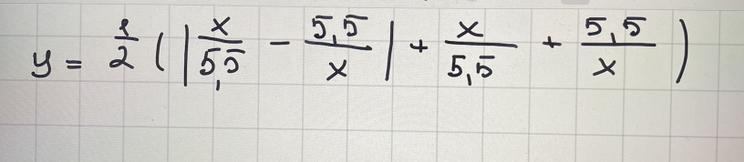 y = 1/2 ( | x/5,5 - 5,5/x | + x/5,5 + 5,5/x )